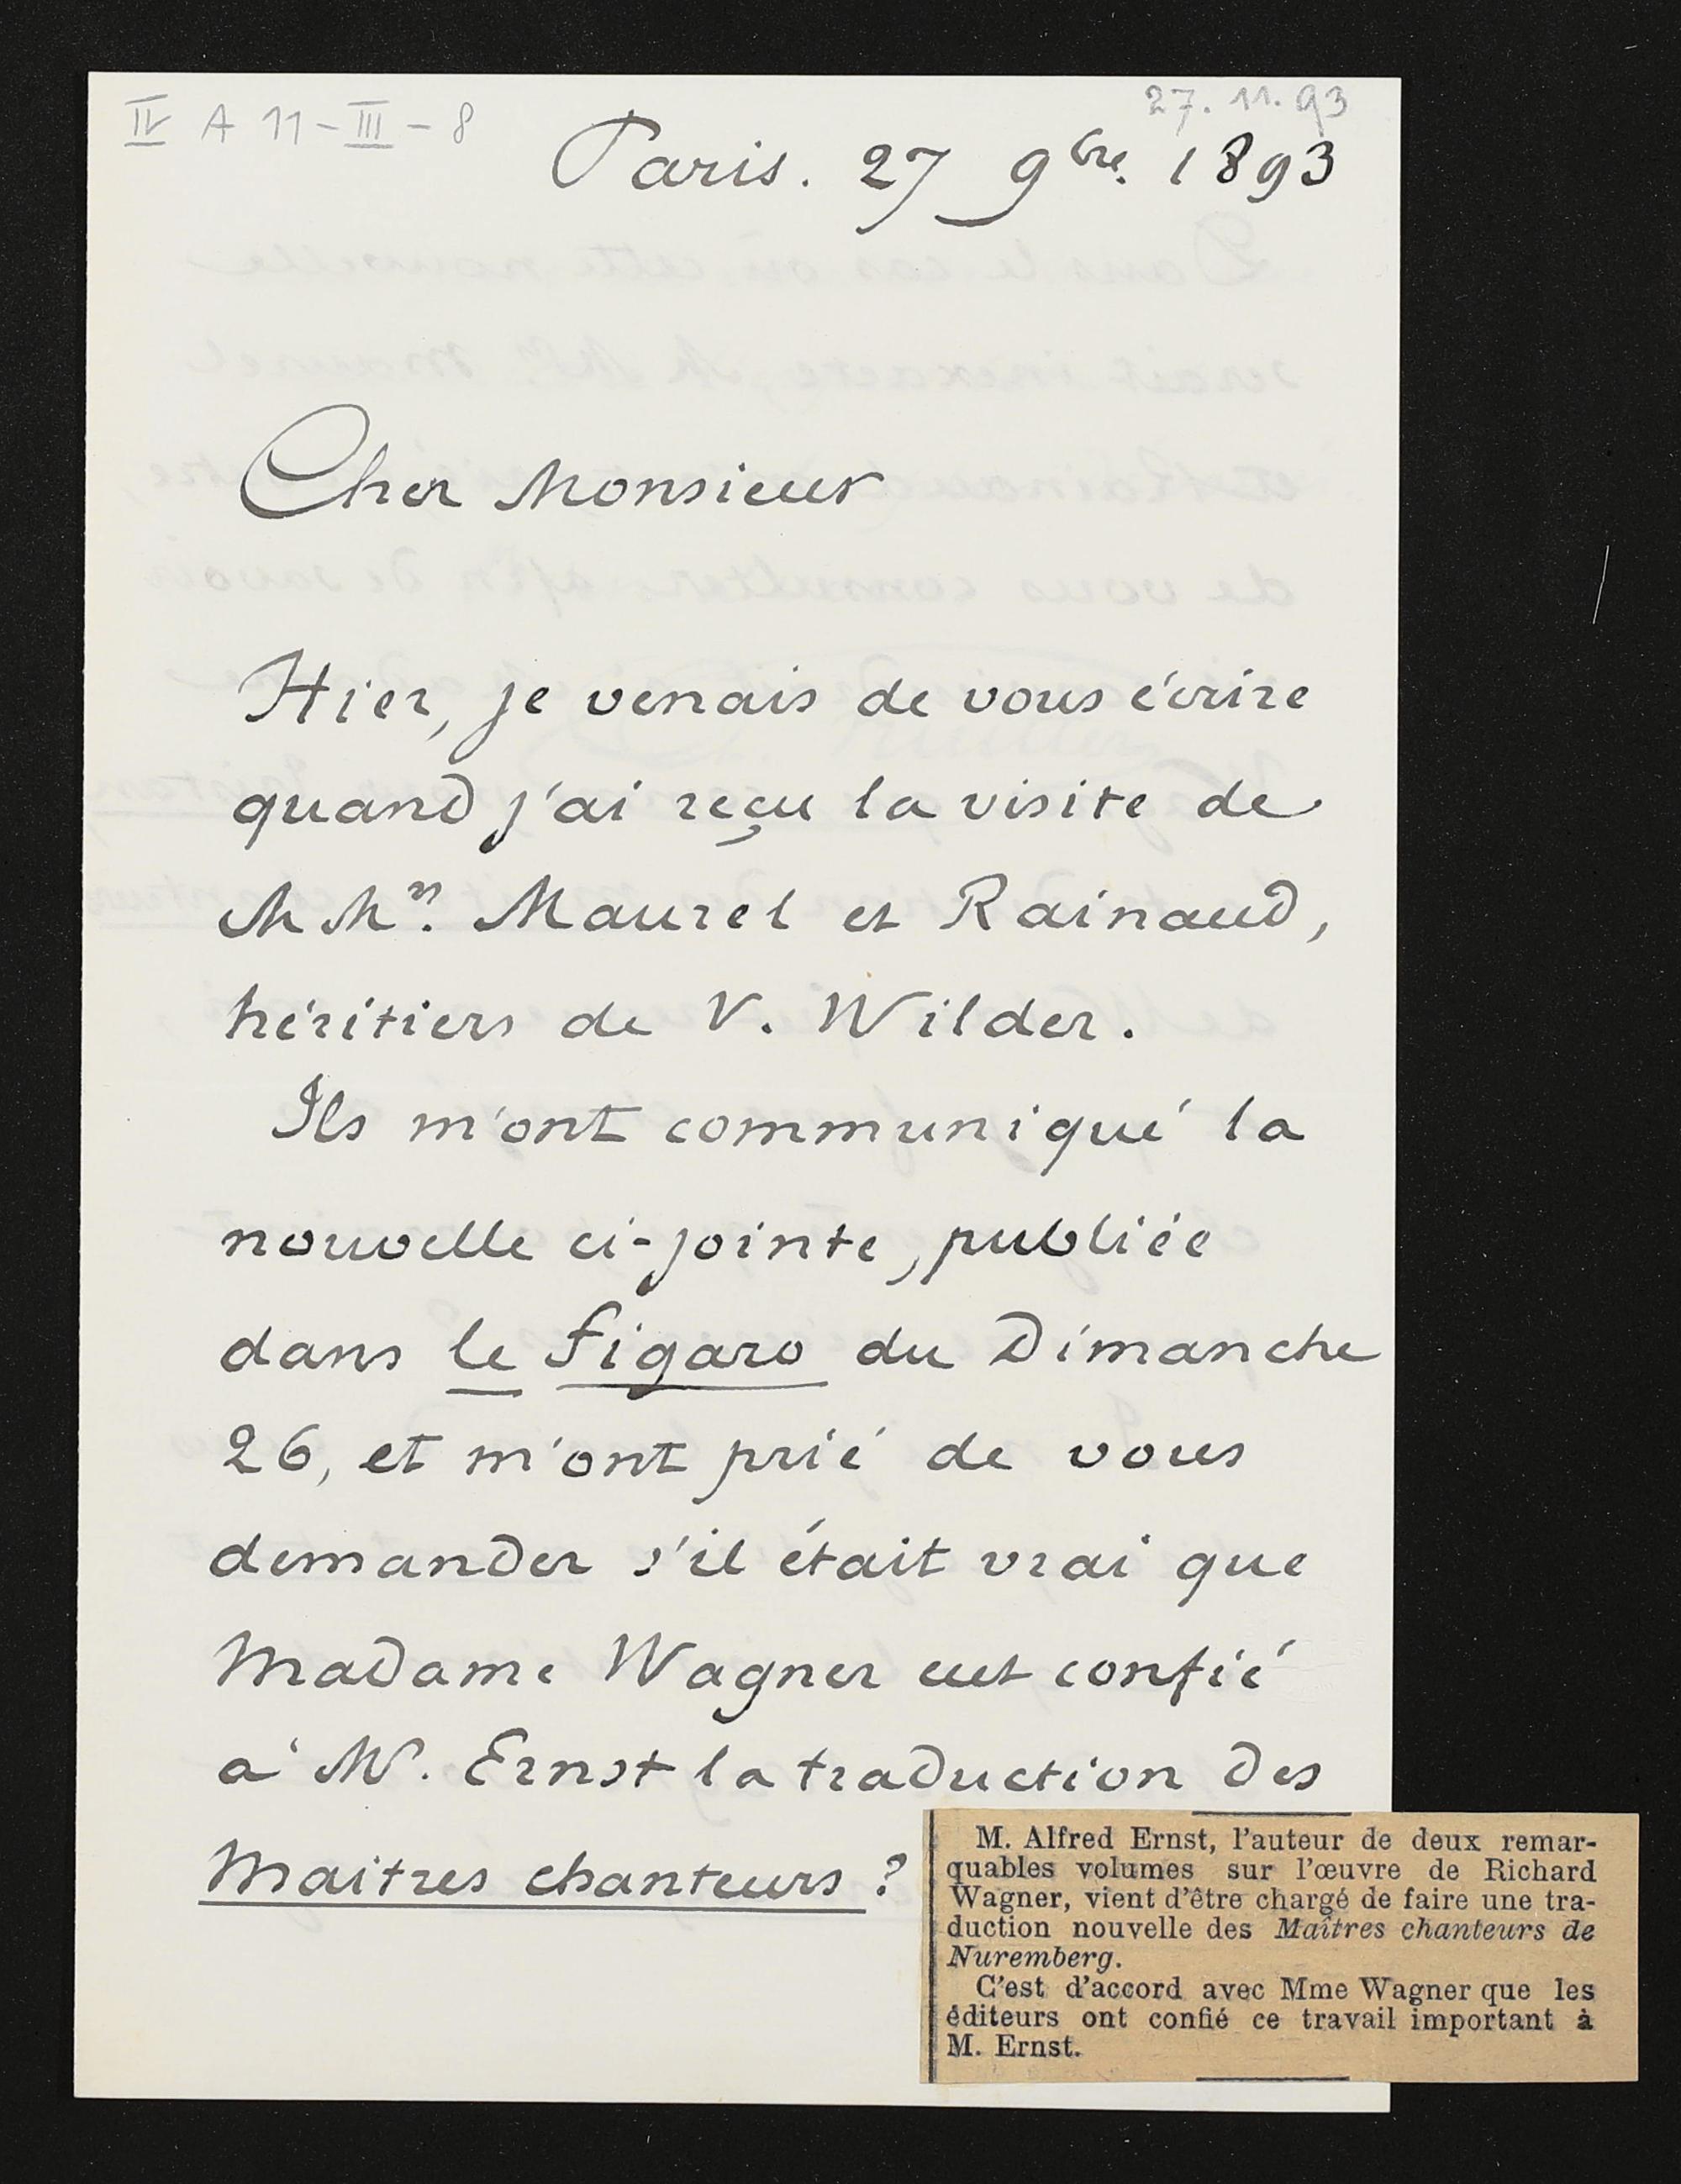 IV A 11-III-8
27.11.93
Paris. 27 9bre. 1893
Cher Monsieur
Hier, je venais de vous écrire
quand j'ai reçu la visite de
MMrs. Maurel et Rainaud,
héritiers de V. Wilder.
Ils m'ont communiqué la
nouvelle ci-jointe, publiée
dans le Figaro du Dimanche
26, et m'ont prié de vous
demander s'il était vrai que
Madame Wagner eut confié
à Mr. Ernst la traduction des
Maitres chanteurs ?
M. Alfred Ernst, l'auteur de deux remar-
quables volumes sur l'œuvre de Richard
Wagner, vient d'être chargé de faire une tra-
duction nouvelle des Maîtres chanteurs de
Nuremberg.
C'est d'accord avec Mme Wagner que les
éditeurs ont confié ce travail important à
M. Ernst.